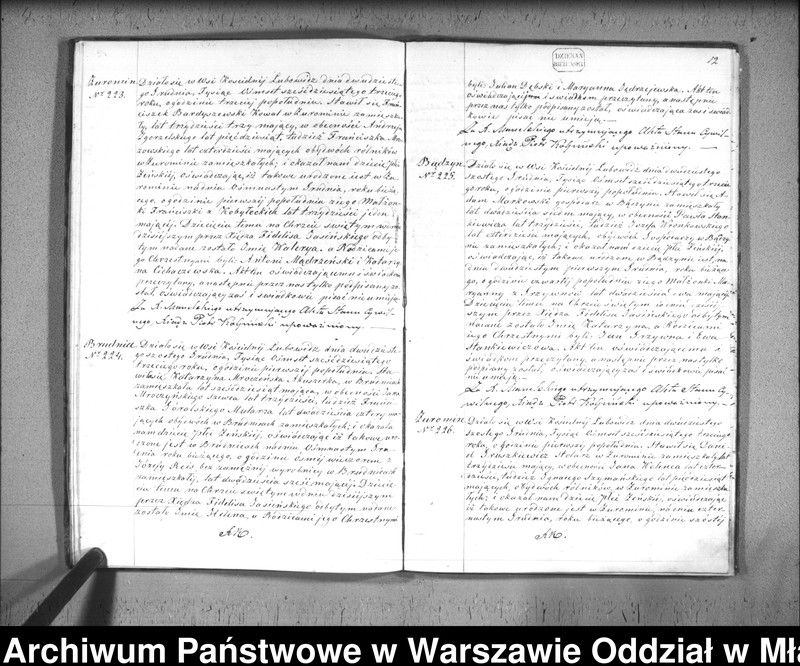 Żuromin. Działo się w Wsi Kościelnej Lubowidz dnia dwudziste-
No 223. go Grudnia, Tysiąc Ośmset sześćdziesiątego trzeciego
roku, o godzinie trzeciej popołudniu. Stawił się Fran-
ciszek Bardyszewski Kowal w Żurominie zamieszka-
ły, lat trzydzieści trzy mający, w obecności Andrzeja
Zgorzelskiego lat pięćdziesiąt, tudzież Franciszka
lat czterdzieści mających obydwóch rolników
w Żurominie zamieszkałych; i okazał nam dziecię płci
Żeńskiej, oświadczając, iż takowe urodzone jest w Żu-
rominie na dniu Ośmnastym Grudnia, roku bieżą-
cego, o godzinie pierwszej popołudniu z jego Małżon-
ki Franciszki z Kobyleckich lat trzydzieści jeden
mającej. Dziecięciu temu na Chrzcie świętym w dniu
dzisiejszym przez Xiędza Fidelisa Jasińskiego odby-
tym nadane zostało Imie Walerya, a Rodzicami je-
go Chrzestnymi byli Antoni Mądrzeński i Katarzy-
na Cichoczewska. Akt ten oświadczającemu i świadkom
przeczytany, a następnie przez nas tylko podpisany zo-
stał, oświadczający zaś i świadkowie pisać nie umieją.
Za A. utrzymującego Akta Stanu Cywil-
nego, Xiądz Piotr upoważniony. —
Brudnice Działo się w Wsi Kościelnej Lubowidz dnia dwudzieste-
No 224. go szóstego Grudnia, Tysiąc Ośmset sześćdziesiątego
trzeciego roku, o godzinie pierwszej popołudniu. Sta-
wiła się Katarzyna Mroczeńska Akuszerka, w Brudnicach
zamieszkała lat sześćdziesiąt mająca, w obecności Jana
Mroczyńskiego Szewca lat trzydzieści, tudzież Franci-
szka Góralskiego Mularza lat dwadzieścia cztery ma-
jących obydwóch w Brudnicach zamieszkałych; i okazała
nam dziecię płci Żeńskiej, oświadczając iż takowe, uro-
dzone jest w Brudnicach na dniu Ośmnastym Gru-
dnia roku bieżącego, o godzinie ósmej wieczorem z
Józefy Reis bezzamężnej wyrobnicy w Brudnicach
zamieszkałej, lat dwadzieścia sześć mającej. Dziecię-
ciu temu na Chrzcie świętym w dniu dzisiejszym
przez Xiędza Fidelisa Jasińskiego odbytym nadane
zostało Imie Helena, a Rodzicami jego Chrzestnymi
12
byli: Julian Dębski i Maryanna Jędrzejewska. Akt ten
oświadczającej i świadkom przeczytany, a następnie
przez nas tylko podpisany został, oświadczająca zaś i świad-
kowie pisać nie umieją. —
Za A. utrzymującego Akta Stanu Cywil-
nego, Xiądz Piotr upoważniony. —
Bądzyn. Działo się w Wsi Kościelnej Lubowidz dnia dwudziestego
No 225. szóstego Grudnia, Tysiąc Ośmset sześćdziesiątego trzecie-
go roku, o godzinie pierwszej popołudniu, stawił się A-
dam Markowski gospodarz w Bądzynie zamieszkały
lat dwadzieścia siedm mający, w obecności Pawła Stan-
kiewicza lat trzydzieści, tudzież Józefa
lat czterdzieści mających, obydwóch Gospodarzy w Bądzy-
nie zamieszkałych; i okazał nam dziecię płci Żeńskiej,
oświadczając, iż takowe urodzone w Bądzynie jest, na
dniu dwudziestym pierwszym Grudnia, roku bieżące-
go, o godzinie czwartej popołudniu z jego Małżonki Ma-
ryanny z lat dwadzieścia dwa mającej.
Dziecięciu temu na Chrzcie świętym w dniu dzisiej-
szym przez Xiędza Fidelisa Jasińskiego odbytym
nadane zostało Imie Katarzyna, a Rodzicami
jego Chrzestnymi byli, Jan i Ewa
Stankiewiczowa. Akt ten oświadczającemu i
świadkom przeczytany, a następnie przez nas tylko
podpisany został, oświadczający zaś i świadkowie pisać
nie umieją. —
Za A. utrzymującego Akta Stanu Cy-
wilnego, Xiądz Piotr upoważniony. —
Żuromin. Działo się w Wsi Kościelnej Lubowidz dnia dwudziestego
No 226. szóstego Grudnia, Tysiąc Ośmset sześćdziesiątego trzeciego
roku, o godzinie pierwszej popołudniu, Stawił się Dani-
el Gruszkiewicz Stolarz w Żurominie zamieszkały lat
trzydzieści mający, w obecności Jana lat czter-
dzieści, tudzież Ignacego Szymańskiego lat pięćdziesiąt
mających, obydwóch rolników, w Żurominie zamieszka-
łych; i okazał nam dziecię płci Żeńskiej, oświadczając
iż takowe urodzone jest w Żurominie, na dniu czter-
nastym Grudnia, roku bieżącego, o godzinie szóstej
Archiwum Państwowe w Warszawie Oddział w Mła